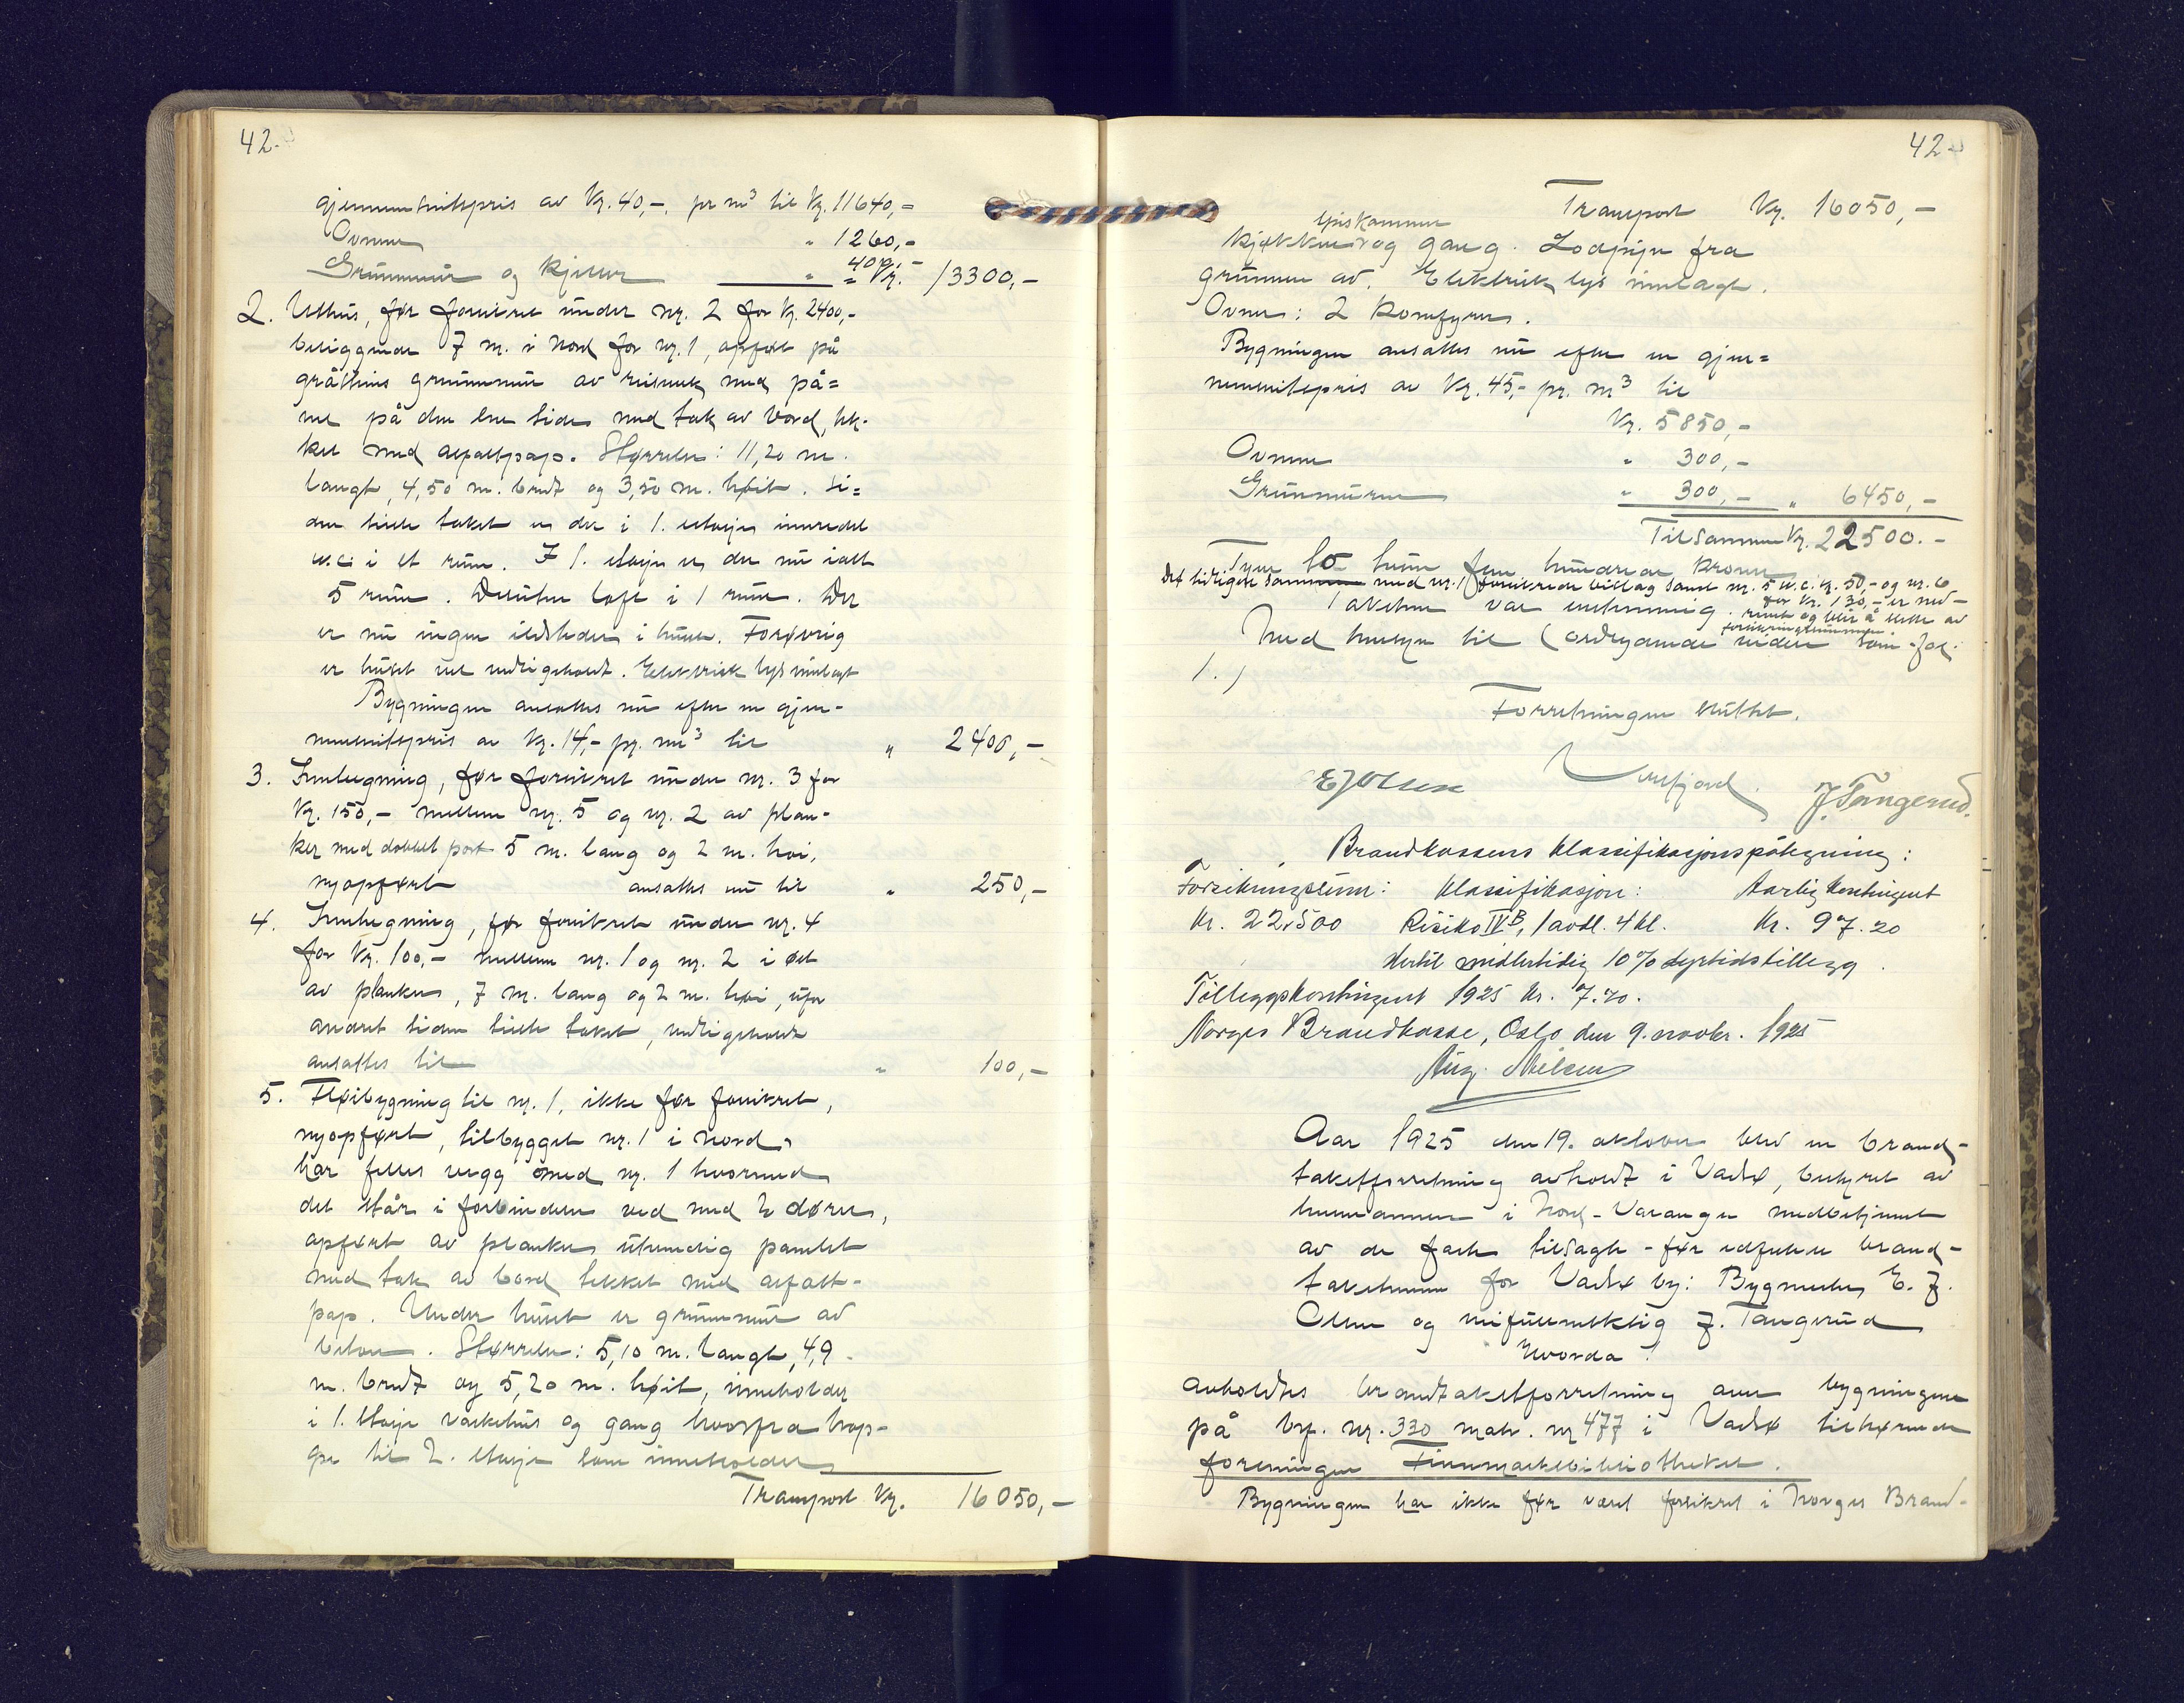 42.
gjennemsnitspris av Kr. 40,-, pr m³ til Kr. 11640,-
Ovnene " 1260,-
Grunnmur og kjeller " 400,- = Kr. 13300,-
2. Uthus, før forsikret under nr. 2 for Kr. 2400,-
beliggende 7 m. i nord for nr. 1, opført på
gråstens grunnmur av reisverk med på=
nel på den ene side med tak av bord, tek-
ket med asfaltpap. Størrelse: 11,20 m.
langt, 4,50 m. bredt og 3,50 m. høit. Si=
den siste takst er der i 1. etasje innredet
w.c. i et rum. I 1. etasje er der nu ialt
5 rum. Desuten loft i 1 rum. Der
er nu ingen ildsteder i huset. Forøvrig
er huset vel vedligeholdt. Elektrisk lys innlagt
Bygningen ansattes nu efter en gjen-
nemsnitspris av Kr. 14,- pr. m³ til " 2400,-
3. Innhegning, før forsikret under nr. 3 for
Kr. 150,- mellem nr. 5 og nr. 2 av plan-
ker med dobbel port 5 m. lang og 2 m. høi,
nyopført ansattes nu til " 250,-
4. Innhegning, før forsikret under nr. 4
for Kr. 100,- mellem nr. 1 og nr. 2 i øst
av planker, 7 m. lang og 2 m. høi, ufor
andret siden siste takst, vedligeholdt
ansattes til " 100,-
5. Fløibygning til nr. 1, ikke før forsikret,
nyopført, tilbygget nr. 1 i nord,
har felles vegg med nr. 1 hvormed
det står i forbindelse ved med 2 dører,
opført av planker utvendig panelet
med tak av bord tekket med asfalt-
pap. Under huset er grunnmur av
beton. Størrelse: 5,10 m. langt, 4,9
m. bredt og 5,20 m. høit, inneholder
i 1. etasje vaskehus og gang hvorfra trap-
pe til 2. etasje som inneholder
Transport Kr. 16050,-
42
Transport Kr. 16050,-
spiskammer
kjøkken og gang. Lodpipe fra
grunnen av. Elektrisk lys innlagt.
Ovner: 2 komfyrer.
Bygningen ansattes nu efter en gjen=
nemsnitspris av Kr. 45,- pr. m³ til
Kr. 5850,-
Ovnene " 300,-
Grunnmuren " 300,- " 6450,-
Tilsammen Kr. 22500.-
Tyve to tusen fem hundrede kroner
Det tidligere sammen med nr. 1 forsikrede bislag samt nr. 5 w.c. kr. 50,- og nr. 6
for Kr. 130,- er ned-
Taksten var enstemmig. revet og blir å slette av
forsikringssummen
Med hensyn til (ordgående siden som fol.
1.)
Forretningen sluttet.
E J Olsen Varfjord. J. Tangerud.
Brandkassens klassifikasjonspåtegning:
Forsikringssum: Klassifikasjon: Aarlig kontingent
Kr. 22.500 Risiko IV B, 1 avdl. 4 kl. Kr. 97.20
Hertil midlertidig 10% dyrtidstillegg.
Tilleggskontingent 1925 Kr. 7.20.
Norges Brandkasse, Oslo den 9. novbr. 1925
Aug. Nielsen
Aar 1925 den 19. oktober blev en brand-
takstforretning avholdt i Vadsø, bestyret av
lensmannen i Nord-Varanger medbetjent
av de faste tilsagte - før edfestede brand-
takstmenn for Vadsø by: Bygmester E. J.
Olsen og veifullmektig J. Tangerud
Hvorda!
avholdtes brandtakstforretning over bygningene
på brf. nr. 330 matr. nr 477 i Vadsø tilhørende
foreningen Finnmarksbibliotheket.
Bygningen har ikke før været forsikret i Norges Brand-